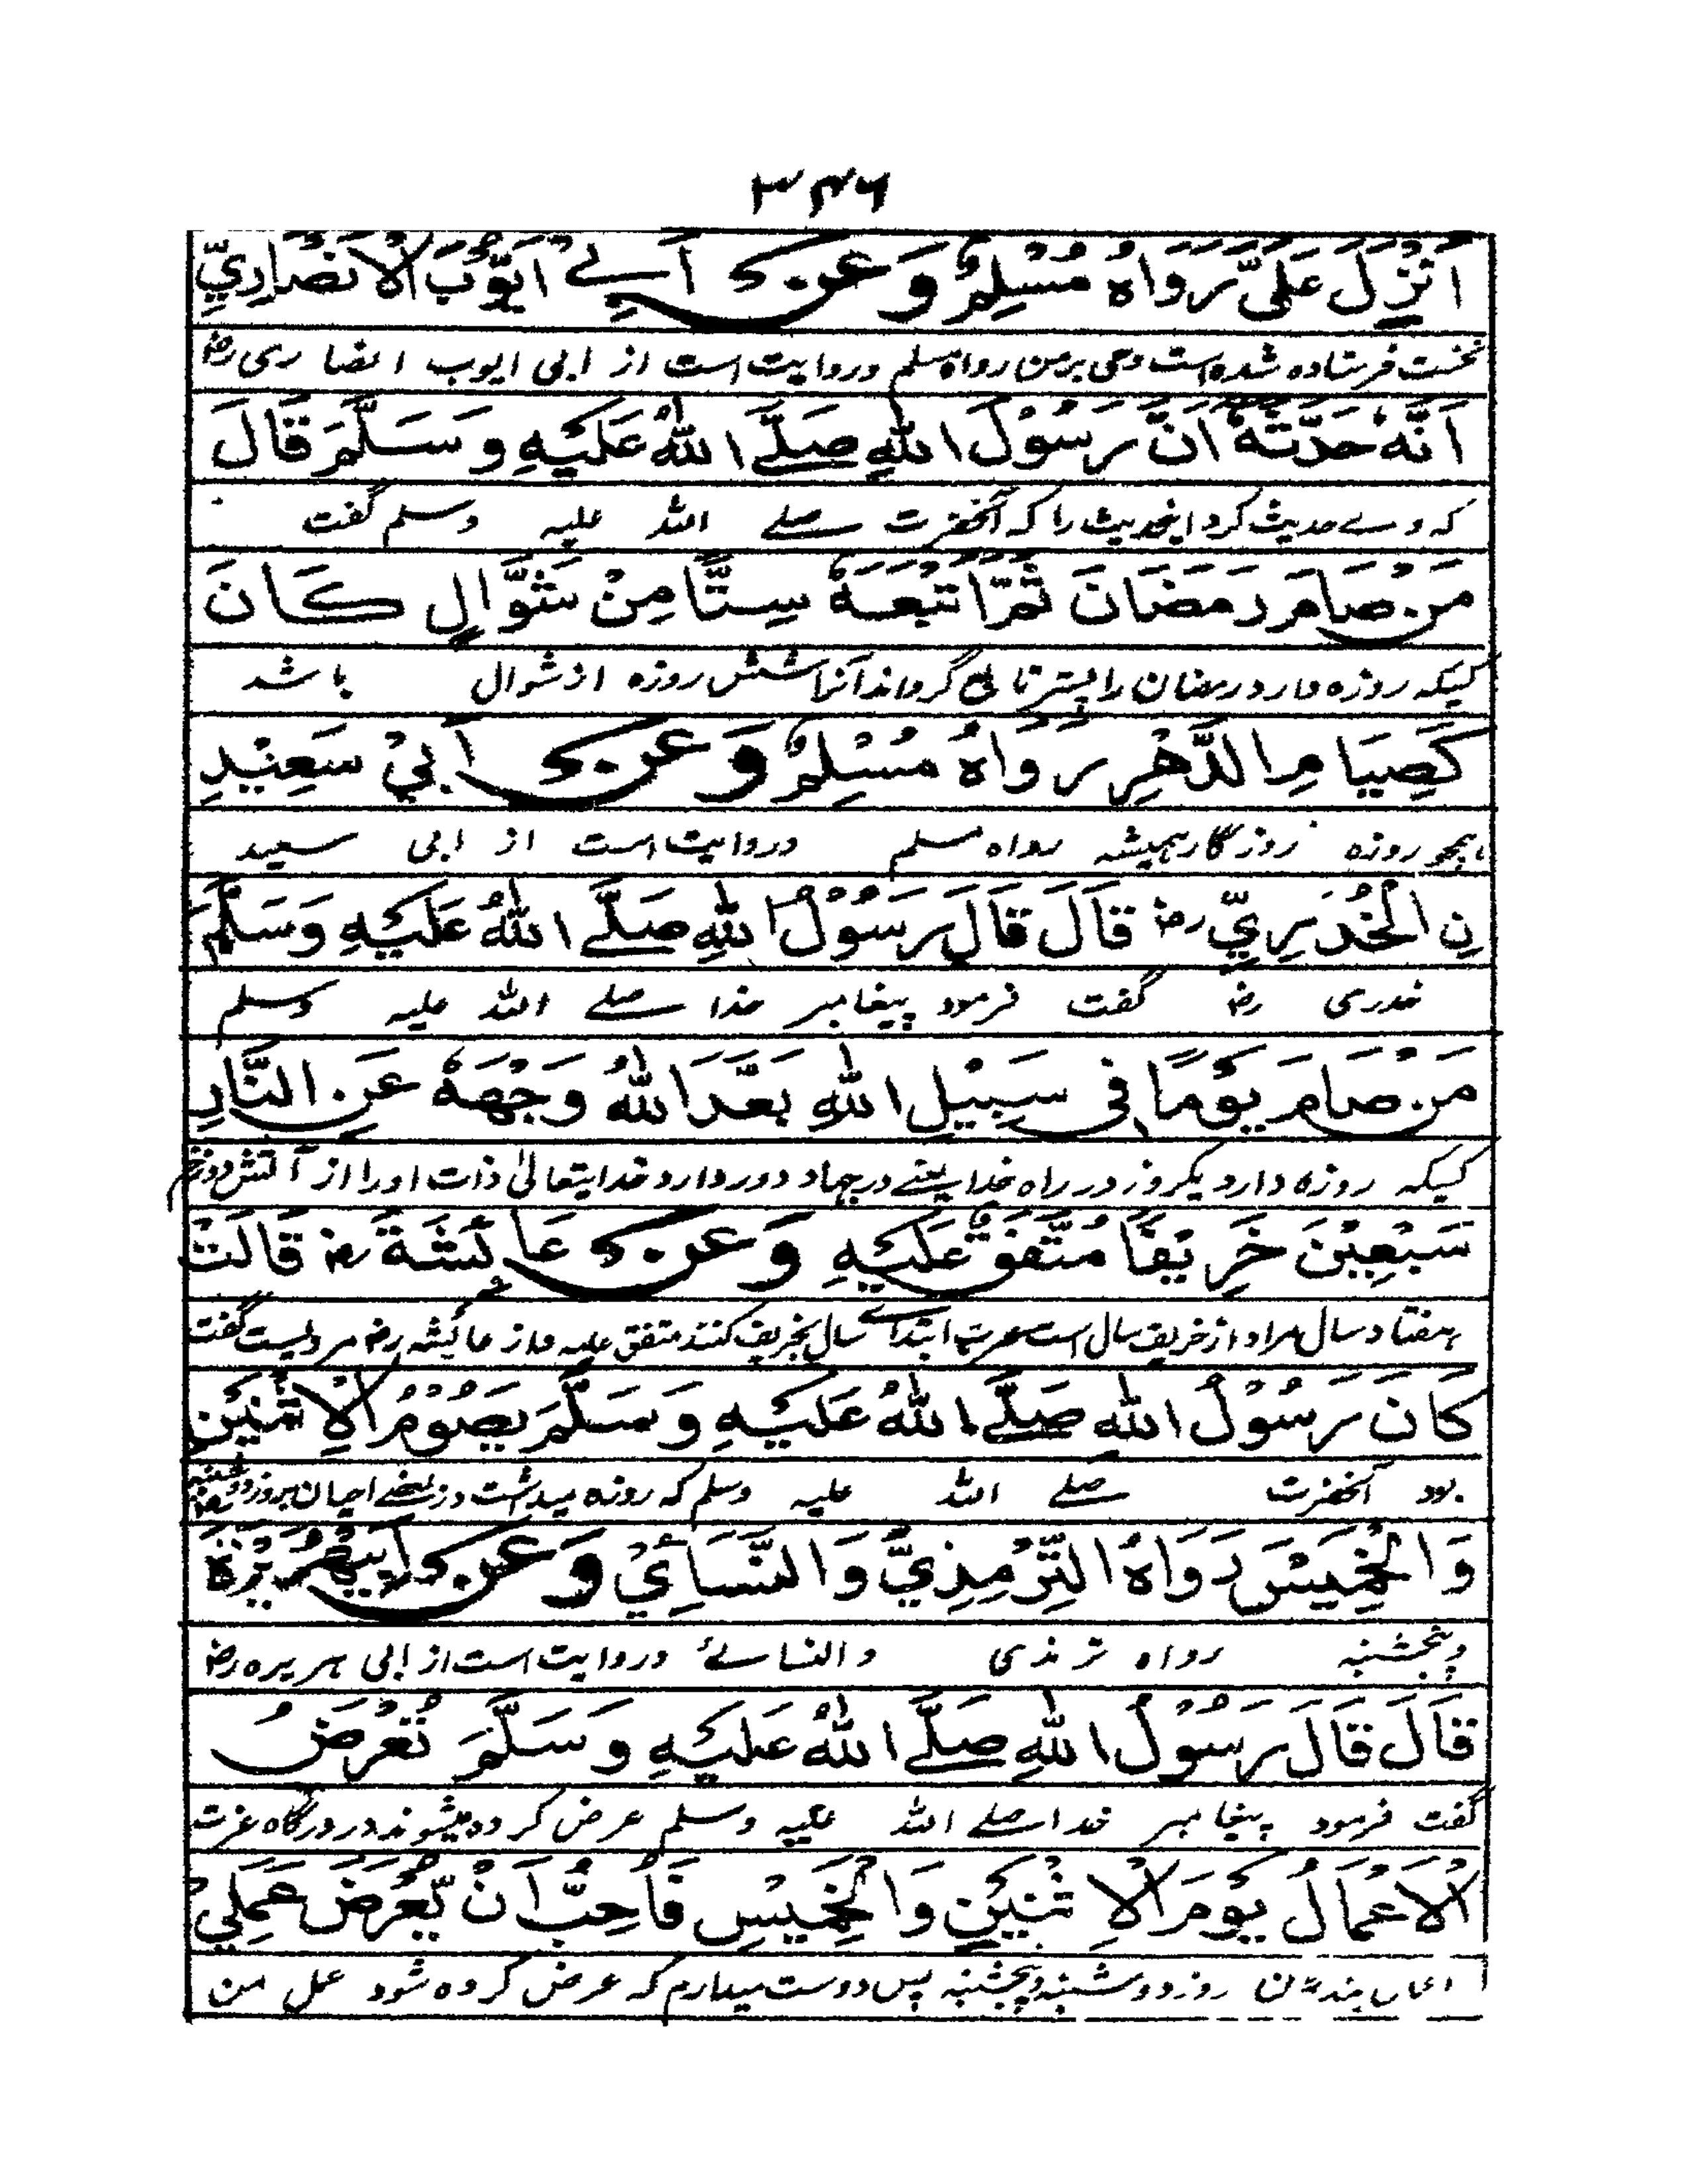 ۳۴۶
اُنْزِلَ عَلَیَّ رَوَاهُ مُسْلِمٌ وَعَنْ اَبِے اَیُّوْبَ الْاَنْصَارِیِّ
نخست فرستاده شده است وحی بر من رواه مسلم وروایت است از ابی ایوب انصاری رض
اَنَّهٗ حَدَّثَهٗ اَنَّ رَسُوْلَ اللّٰهِ صَلَّے اللّٰهُ عَلَیْهِ وَسَلَّمَ قَالَ
که وے حدیث کرد اینحدیث را که آنحضرت صلے الله علیه وسلم گفت
مَنْ صَامَ رَمَضَانَ ثُمَّ اَتْبَعَهٗ سِتًّا مِنْ شَوَّالٍ کَانَ
کسیکه روزه دارد رمضان را پستر تابع گرداند آنرا شش روزه از شوال باشد
کَصِیَامِ الدَّهْرِ رَوَاهُ مُسْلِمٌ وَعَنْ اَبِیْ سَعِیْدِ
همچو روزه روزگار همیشه رواه مسلم وروایت است از ابی سعید
نِ الْخُدْرِیِّ رض قَالَ قَالَ رَسُوْلُ اللّٰهِ صَلَّے اللّٰهُ عَلَیْهِ وَسَلَّمَ
خدری رض گفت فرمود پیغامبر خدا صلے الله علیه وسلم
مَنْ صَامَ یَوْمًا فِی سَبِیْلِ اللّٰهِ بَعَّدَ اللّٰهُ وَجْهَهٗ عَنِ النَّارِ
کسیکه روزه دارد یکروز در راه خدا یعنے در جهاد دور دارد خدایتعالیٰ ذات او را از آتش دوزخ
سَبْعِیْنَ خَرِیْفًا مُتَّفَقٌ عَلَیْهِ وَعَنْ عَائِشَةَ رض قَالَتْ
هفتاد سال مراد از خریف سال است عرب ابتداے سال بخریف کنند متفق علیه واز عائشه رض مرویست گفت
کَانَ رَسُوْلُ اللّٰهِ صَلَّے اللّٰهُ عَلَیْهِ وَسَلَّمَ یَصُوْمُ الْاِثْنَیْنِ
بود آنحضرت صلے الله علیه وسلم که روزه میداشت در بعضے احیان بروز دوشنبه
وَالْخَمِیْسَ رَوَاهُ التِّرْمِذِیُّ وَالنَّسَائِیُ وَعَنْ اَبِیْهُرَیْرَةَ
وپنجشنبه رواه ترمذی والنسائے وروایت است از ابی هریره رض
قَالَ قَالَ رَسُوْلُ اللّٰهِ صَلَّے اللّٰهُ عَلَیْهِ وَسَلَّمَ تُعْرَضُ
گفت فرمود پیغامبر خدا صلے الله علیه وسلم عرض کرده میشوند در درگاه عزت
الْاَعْمَالُ یَوْمَ الْاِثْنَیْنِ وَالْخَمِیْسِ فَاُحِبُّ اَنْ یُّعْرَضَ عَمَلِیْ
اعمال بندگان روز دوشنبه وپنجشنبه پس دوست میدارم که عرض کرده شود عمل من